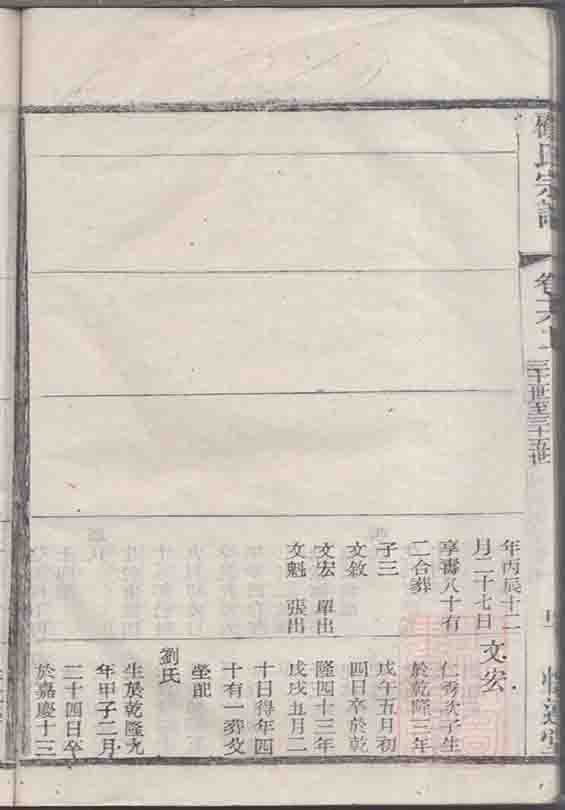 氏宗譜
卷六上
三十世至三十五世
年丙辰十二
月二十七日
享壽八十有
二合葬
子三
文敘
文宏 單出
文魁 張出
文宏
仁秀次子生
於乾隆三年
戊午五月初
四日卒於乾
隆四十三年
戊戌五月二
十日得年四
十有一葬父
塋配
劉氏
生於乾隆九
年甲子二月
二十四日卒
於嘉慶十三